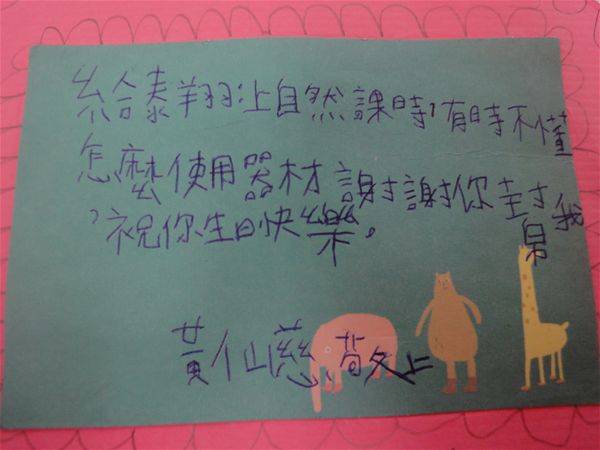 給泰翔:上自然課時,有時不懂
怎麼使用器材謝謝你幫我
,祝你生日快樂。
黃仙慈敬上